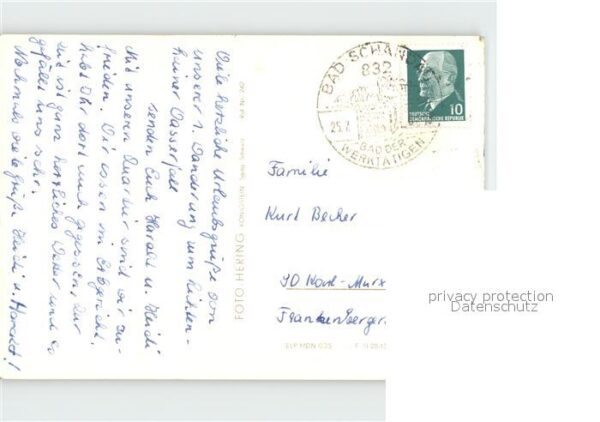 Viele herzliche Urlaubsgrüße von
unserer 1. Wanderung zum Lichten-
hainer Wasserfall
senden Euch Harald u. Heidi
Mit unserem Quartier sind wir zu-
frieden. Wir essen im
habt Ihr dort auch gegessen. Zur
Zeit ist ganz herrliches Wetter und es
gefällt uns sehr.
Nochmals viele Grüße Heidi u. Harald!
FOTO HERING KÖNIGSTEIN
BAD SCHANDAU
832
25.7
BAD DER
WERKTÄTIGEN
10
DEUTSCHE
DEMOKRATISCHE REPUBLIK
Familie
Kurt Becher
90 Karl-Marx
Frankenberger
privacy protection
Datenschutz